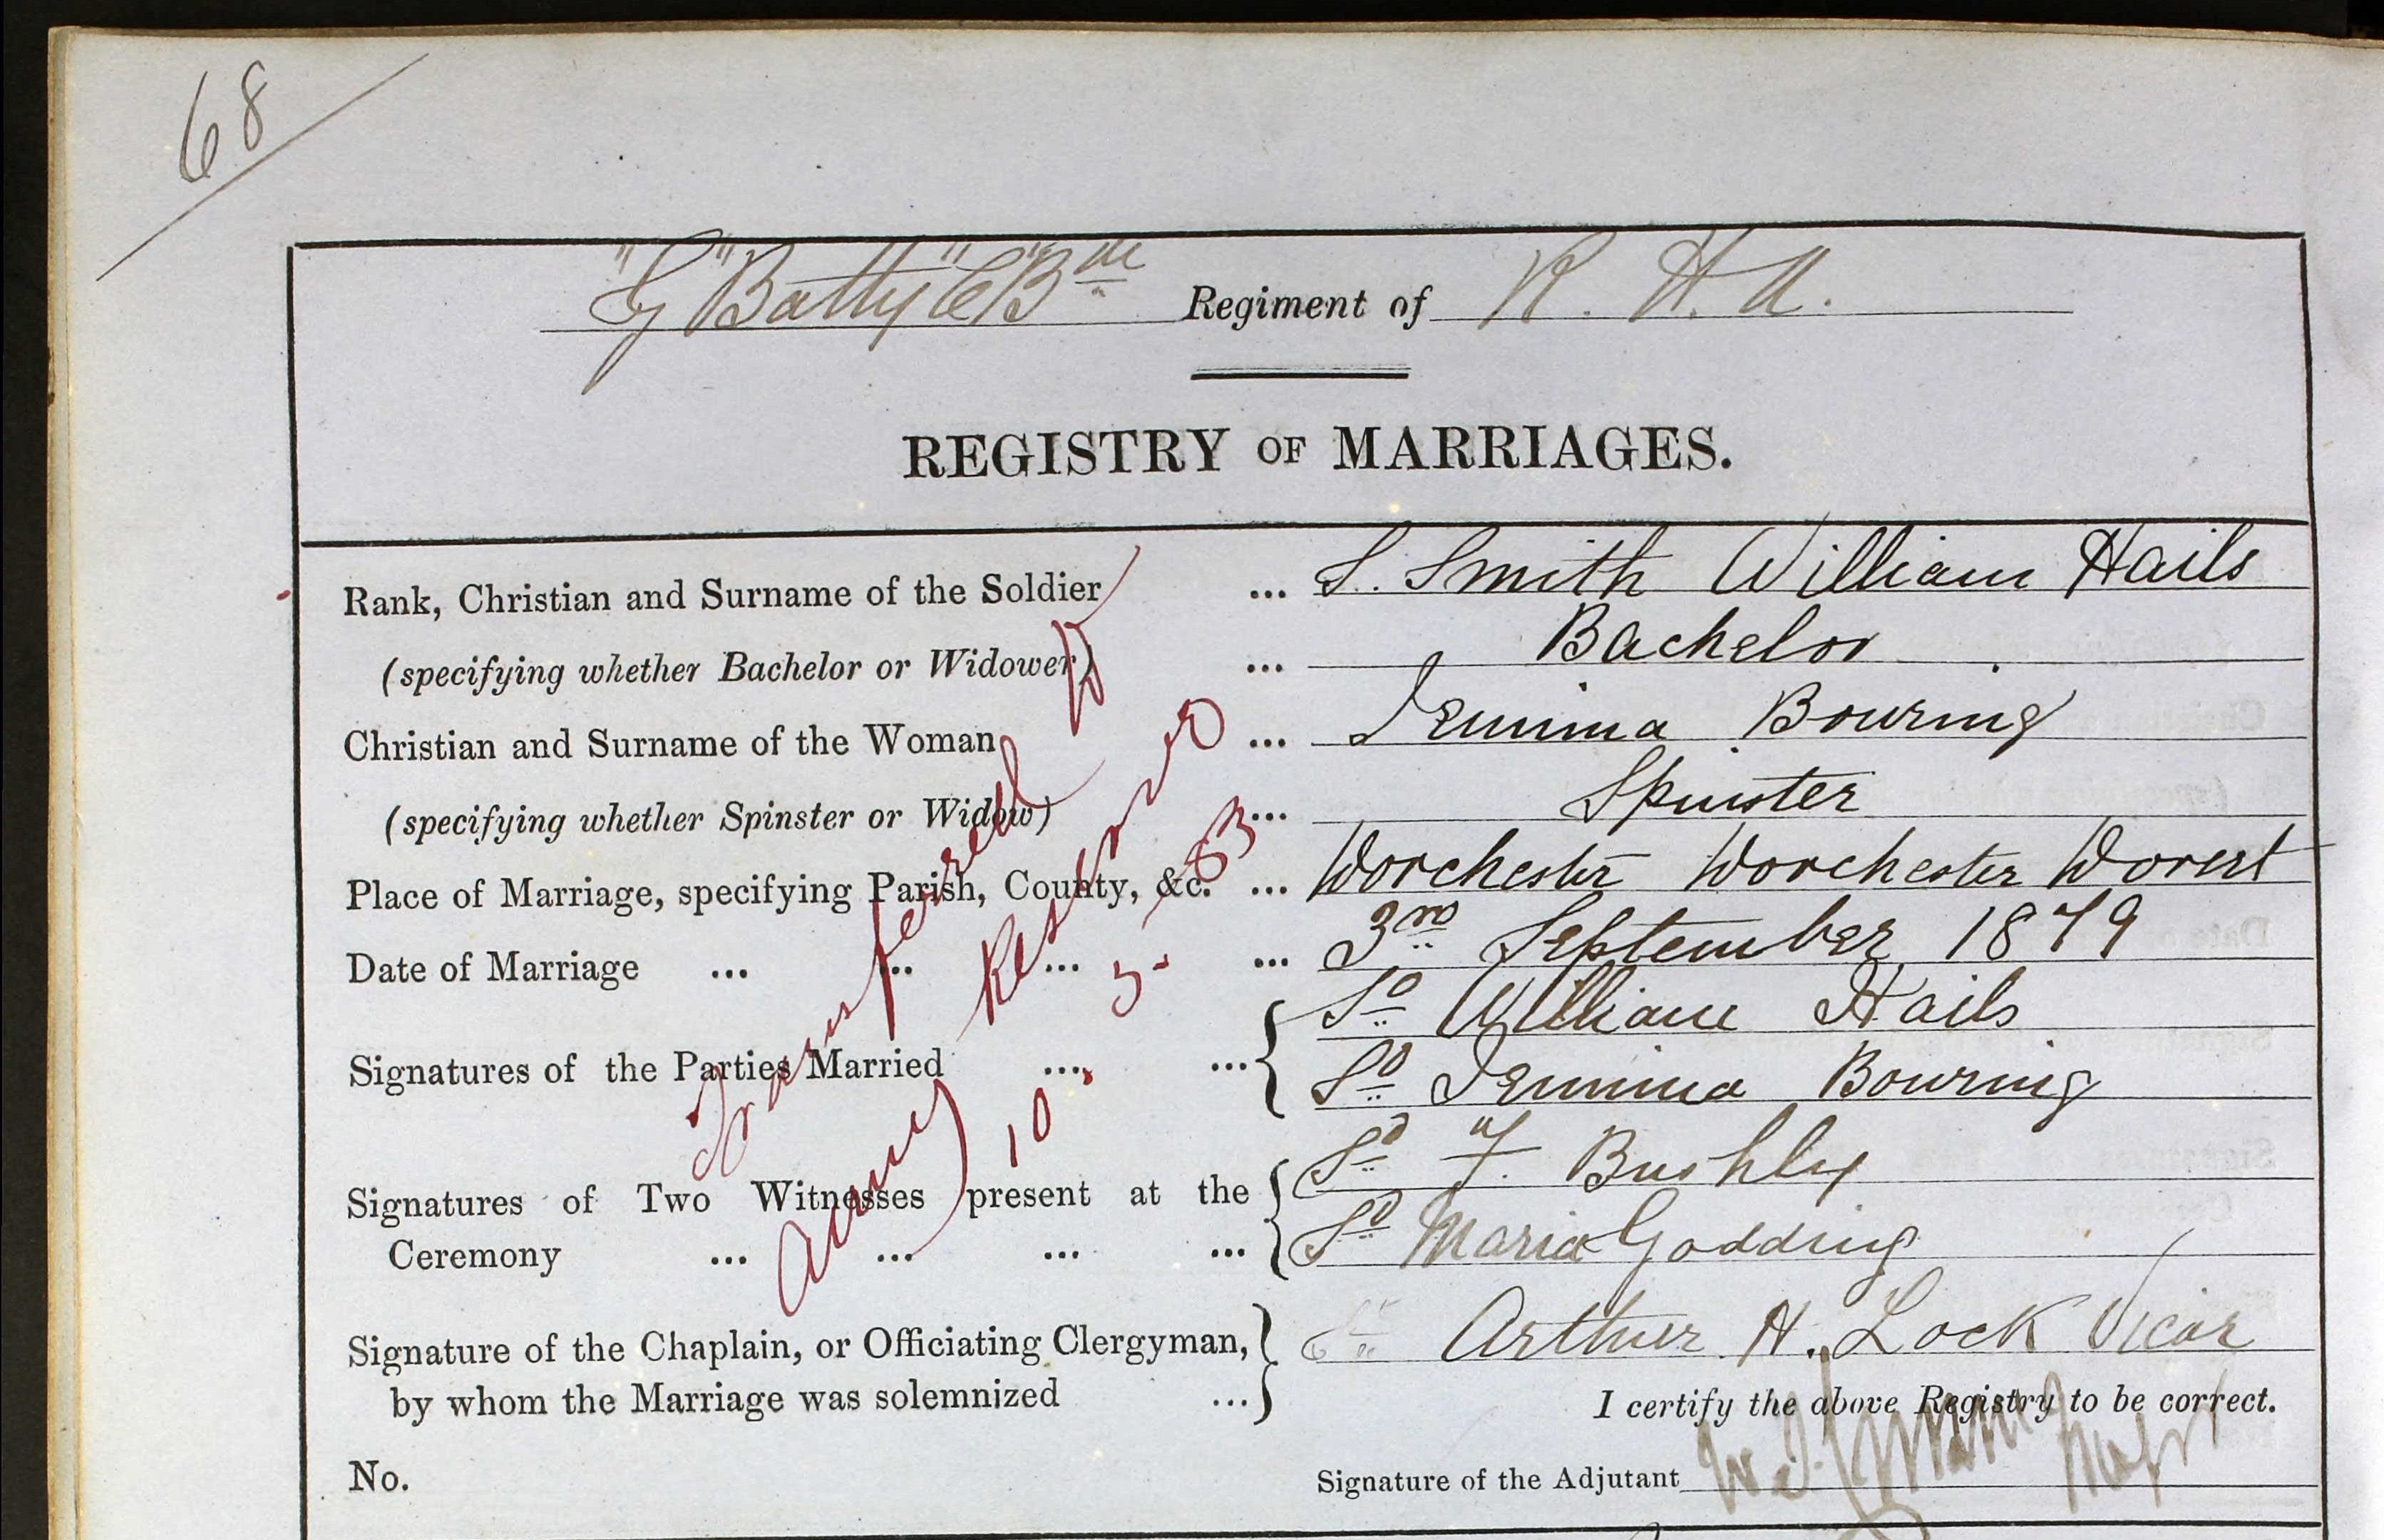 68
"G" Batty "C" Bde Regiment of R. H. A.
REGISTRY OF MARRIAGES.
Rank, Christian and Surname of the Soldier ... S. Smith William Hails
(specifying whether Bachelor or Widower) ... Bachelor
Christian and Surname of the Woman ... Jemima Bowring
(specifying whether Spinster or Widow) ... Spinster
Place of Marriage, specifying Parish, County, &c. ... Worchester Worchester Worcst
Date of Marriage ... ... ... ... 3rd September 1879
Signatures of the Parties Married ... ... { Sd William Hails
Sd Jemima Bowring
Signatures of Two Witnesses present at the { Sd Bushly
Ceremony ... ... ... ... Sd Maria Godding
Signature of the Chaplain, or Officiating Clergyman, } Sd Arthur H. Lock Vicar
by whom the Marriage was solemnized ... }
I certify the above Registry to be correct.
No.
Signature of the Adjutant Major
Transferred to
Army Reserve
10. 5. 83